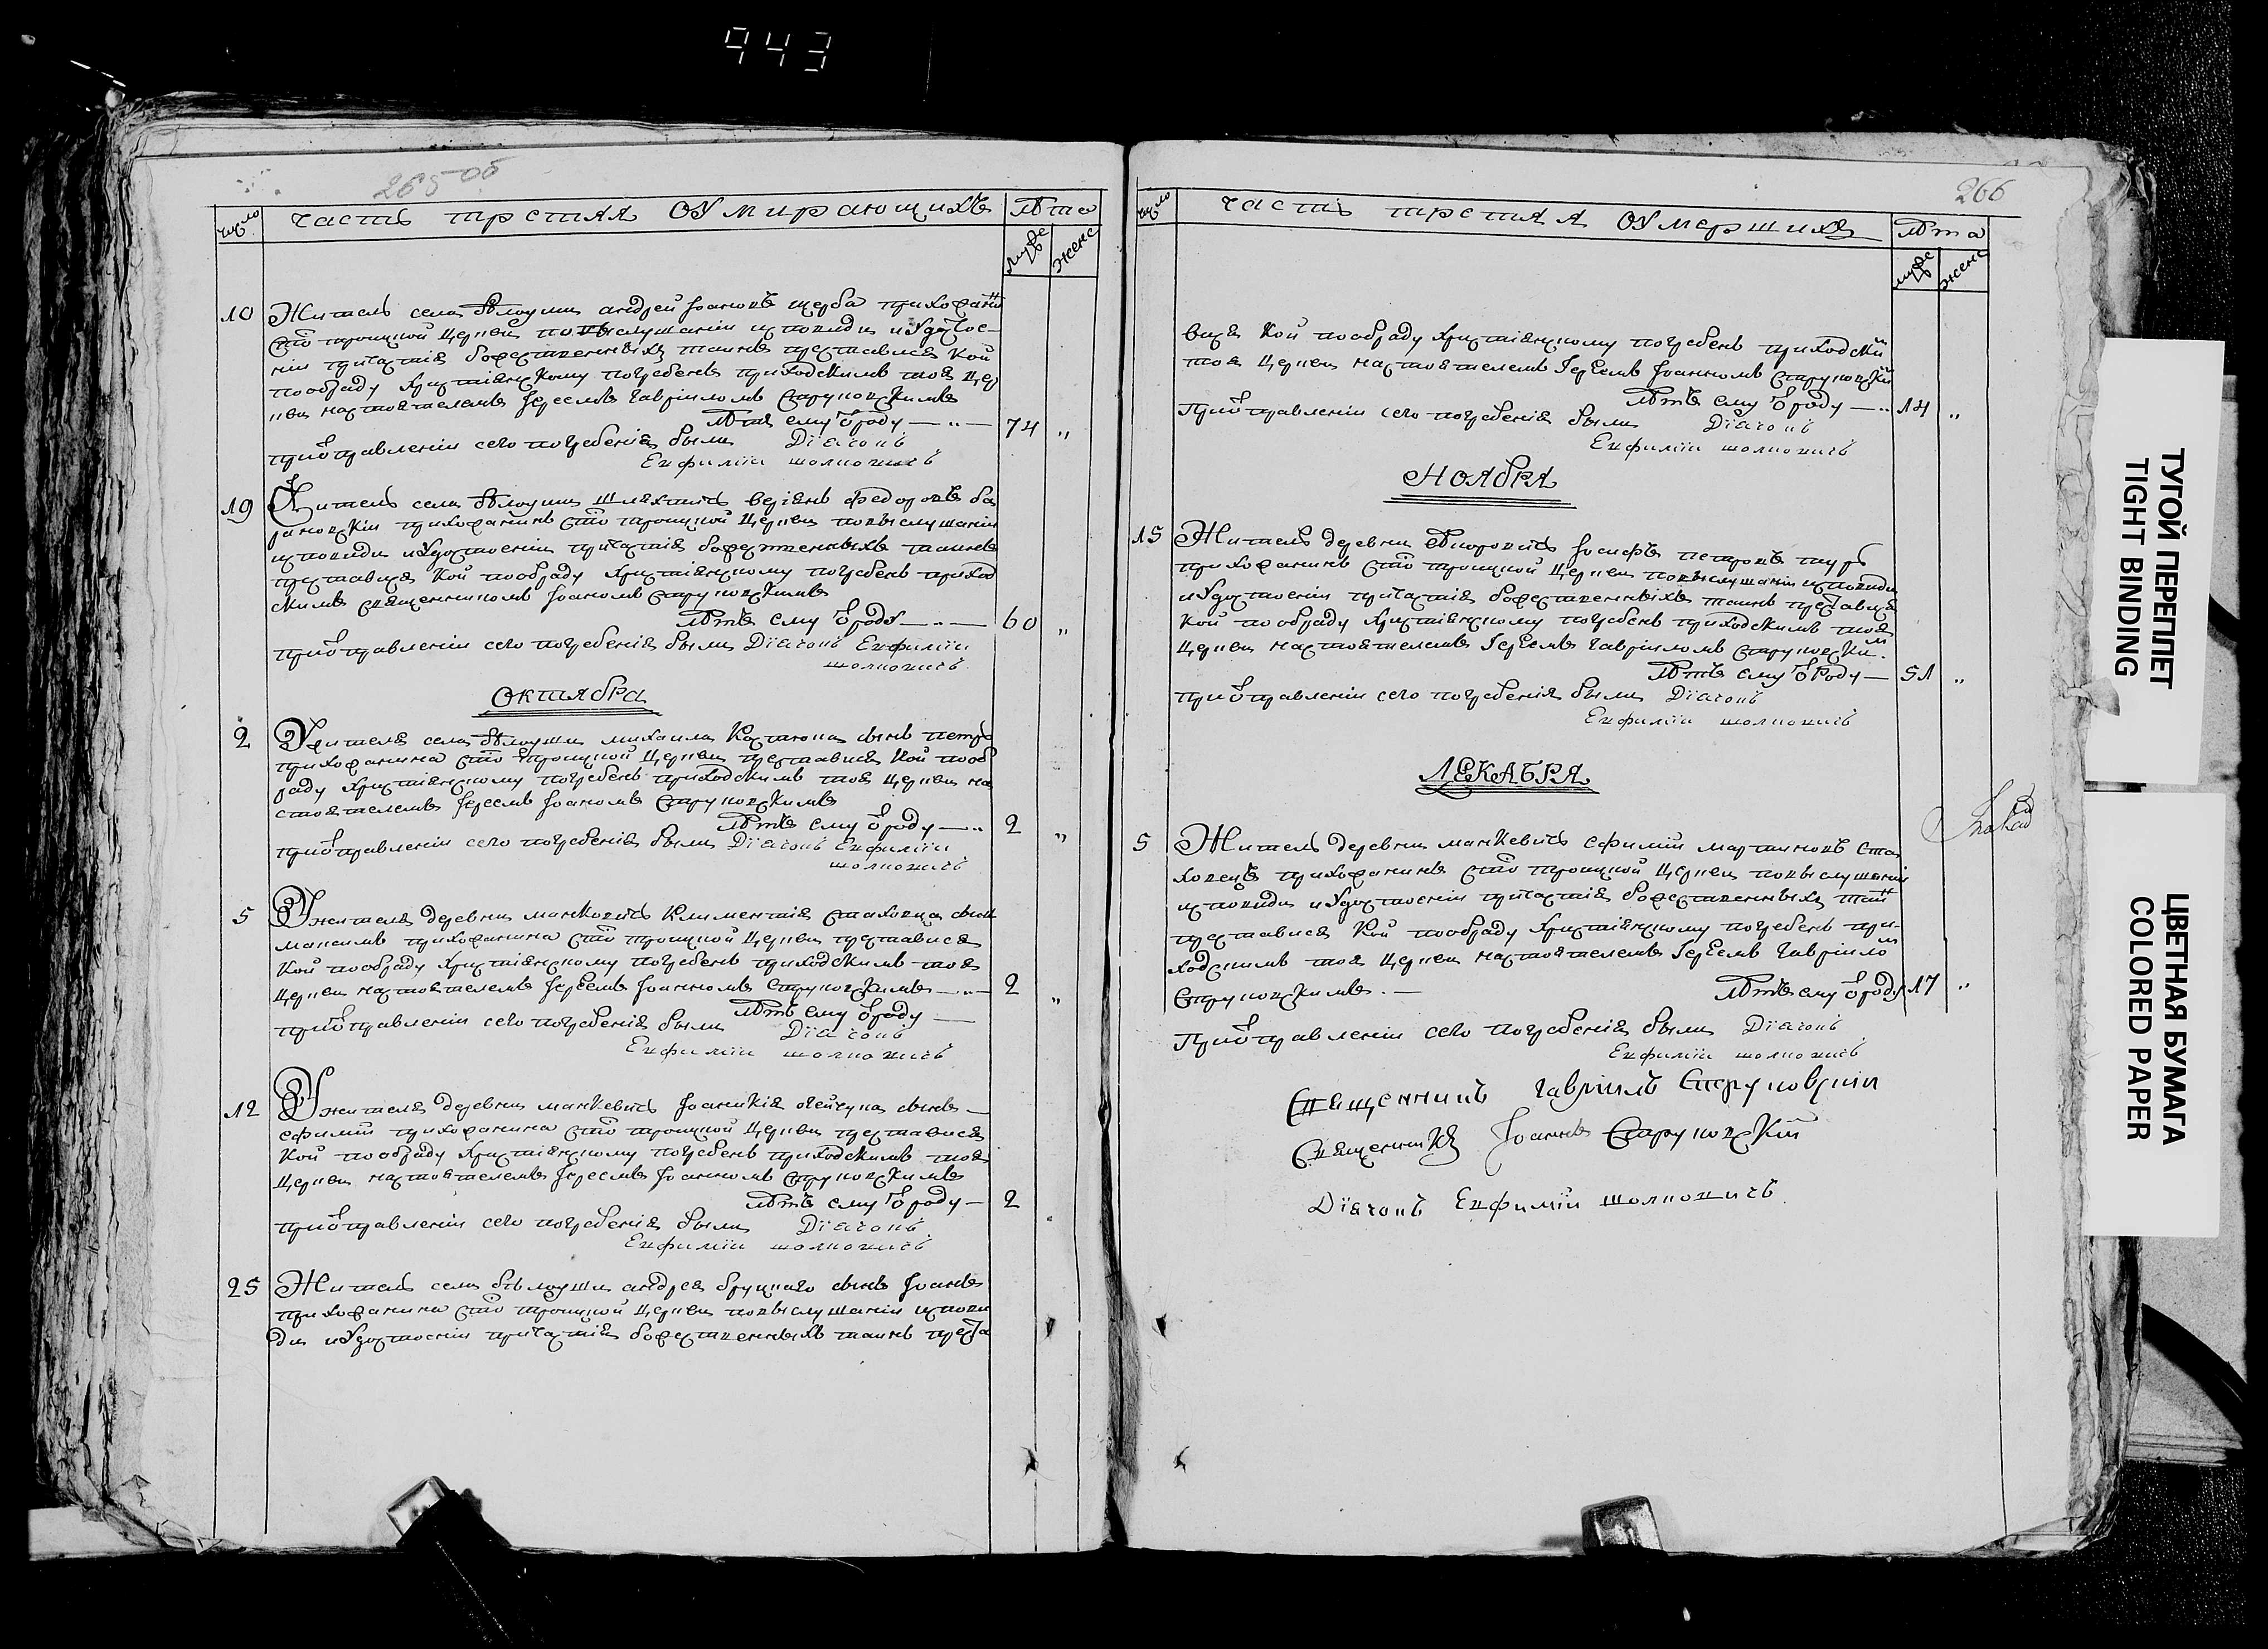 943
265 об
число
часть третая оумирающихъ
лѣта
мужс
женс
10
Житель села бѣлоуши андрей Іоановъ щерба прихожанн
свто троицкой церкви повыслушаніи исповиди и Удостое-
ніи причастія божественныхъ таинъ преставися кой
пообраду христіянскому погребенъ приходскимъ тоя цер
кви настоятелемъ Іереемъ гавріиломъ Струковскимъ
лѣтъ ему ѿ роду
74
„
при ѿправленіи сего погребенія были Діаконъ
Евфимій шолкович
19
Житель села бѣлоуши шляхтичъ федоровъ ба
рановскій прихожанинъ свто троицкой церкви повыслушаніи
исповиди и Удостоеніи причастія божественныхъ таинъ
преставися кой пообраду христіянскому погребенъ приход
скимъ священникомъ Іоаномъ Струковскимъ
лѣтъ ему ѿ роду
60
„
при ѿправленіи сего погребенія были Діаконъ Евфимій
шолкович
Октября
2
У жителя села бѣлоуши михаила сынъ петръ
прихожанина свто троицкой церкви преставися кой пооб
раду христіянскому погребенъ приходскимъ тоя церкви на
стоятелемъ Іереемъ Іоаномъ Струковскимъ
лѣтъ ему ѿ роду
2
„
при ѿправленіи сего погребенія были Діаконъ Евфимій
шолкович
5
У жителя деревни манковичъ климентія стаховца сынъ
максимъ прихожанина свто троицкой церкви преставися
кой пообраду христіянскому погребенъ приходскимъ тоя
церкви настоятелемъ Іереемъ Іоанномъ Струковскимъ
2
„
лѣтъ ему ѿ роду
при ѿправленіи сего погребенія были Діаконъ
Евфимій шолкович
12
У жителя деревни манкевичъ Іоаникія сынъ
ефимій прихожанина свто троицкой церкви преставися
кой пообраду христіянскому погребенъ приходскимъ тоя
церкви настоятелемъ Іереемъ Іоанномъ Струковскимъ
лѣтъ ему ѿ роду
2
при ѿправленіи сего погребенія были Діаконъ
Евфимій шолкович
25
Житель села бѣлоуши андрея бруцкаго сынъ Іоанъ
прихожанина свто троицкой церкви повыслушаніи испови
ди и Удостоеніи причастія божественныхъ таинъ преста
266
число
часть третая оумершихъ
лѣта
мужс
женс
вися кой пообраду христіянскому погребенъ приходским
тоя церкви настоятелемъ Іереемъ Іоанномъ Струковским
лѣтъ ему ѿ роду
14
„
При ѿправленіи сего погребенія были Діаконъ
Евфимій шолкович
Ноября
15
Житель деревни Іосифъ петровъ
прихожанинъ свто троицкой церкви повыслушаніи исповиди
и Удостоеніи причастія божественныхъ таинъ преставися
кой пообраду христіянскому погребенъ приходскимъ тоя
церкви настоятелемъ Іереемъ гавріиломъ Струковским
лѣтъ ему ѿ роду
51
„
при ѿправленіи сего погребенія были Діаконъ
Евфимій шолкович
ДЕКАБРЯ
5
Житель деревни манкевичъ ефимій мартиновъ ста
ховецъ прихожанинъ свто троицкой церкви повыслушаніи
исповиди и Удостоеніи причастія божественныхъ таин
преставися кой пообраду христіянскому погребенъ при-
ходскимъ тоя церкви настоятелемъ Іереемъ гавріилом
Струковскимъ
лѣтъ ему ѿ роду
17
„
При ѿправленіи сего погребенія были Діаконъ
Евфимій шолкович
Священникъ гавріилъ Струковскій
Священникъ Іоаннъ Струковскій
Діаконъ Евфимій шолкович
ТУГОЙ ПЕРЕПЛЕТ
TIGHT BINDING
ЦВЕТНАЯ БУМАГА
COLORED PAPER